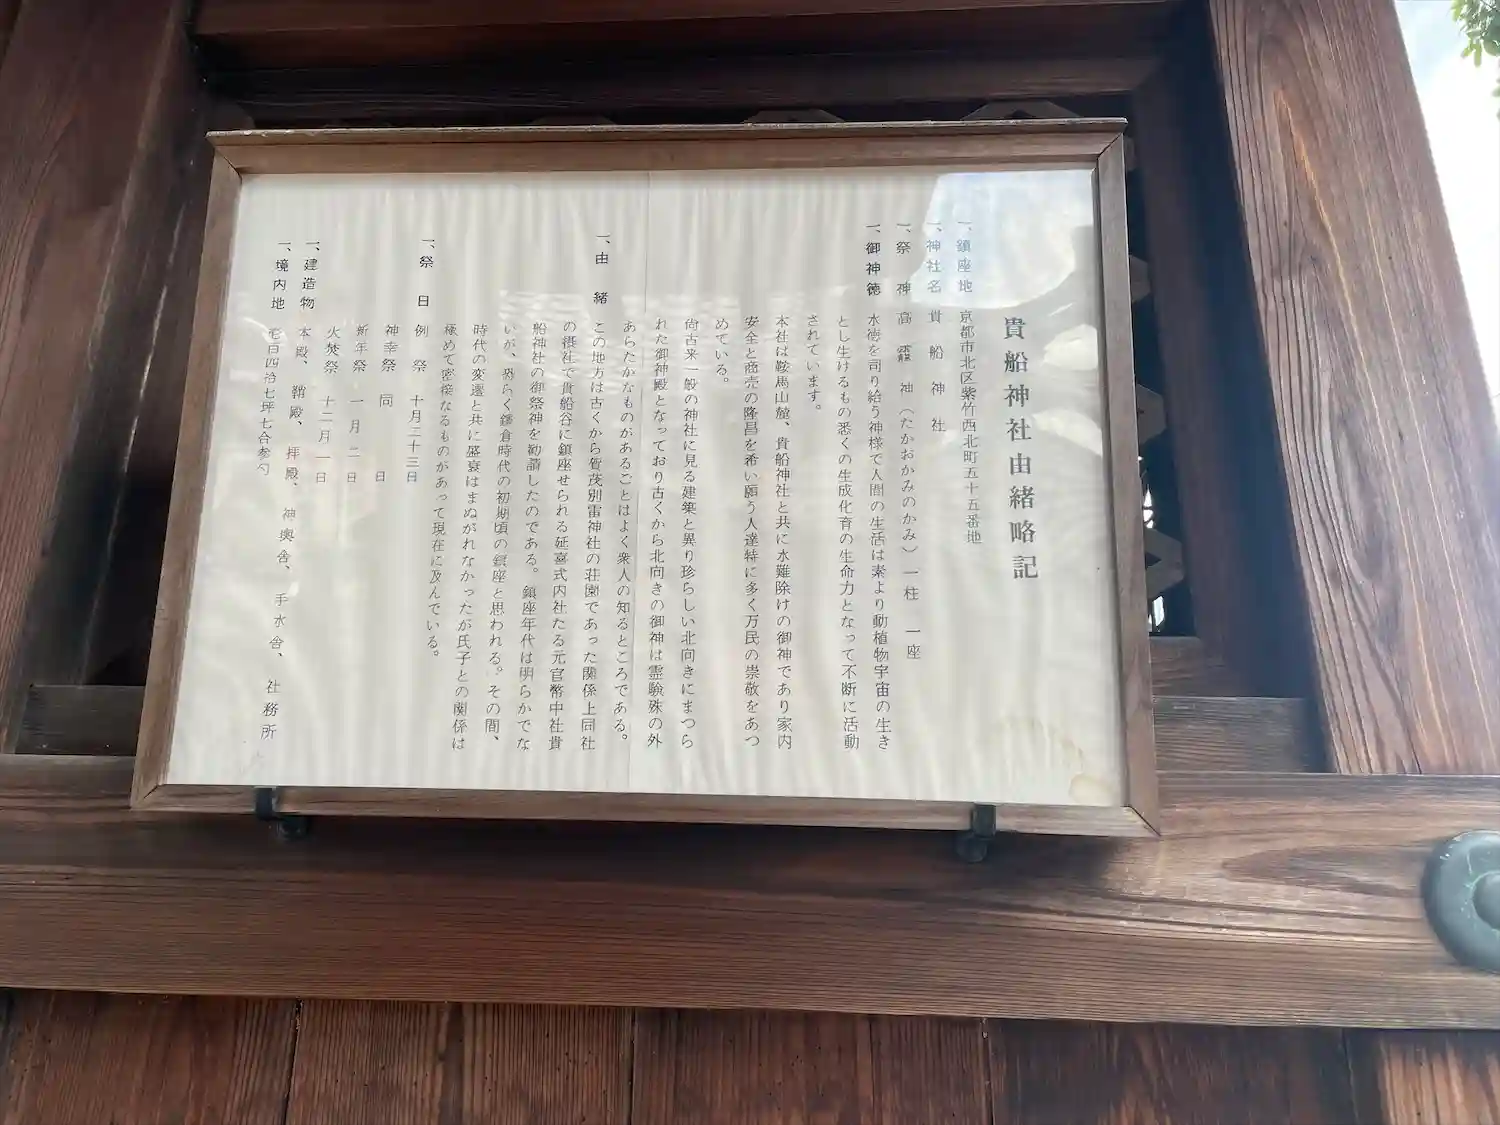 貴船神社由緒略記
一、鎮座地　京都市北区紫竹西北町五十五番地
一、神社名　貴船神社
一、祭　神　高龗神（たかおかみのかみ）一柱　一座
一、御神徳　水徳を司り給う神様で人間の生活は素より動植物宇宙の生き
とし生けるもの悉くの生成化育の生命力となって不断に活動
されています。
本社は鞍馬山麓、貴船神社と共に水難除けの御神であり家内
安全と商売の隆昌を希い願う人達特に多く万民の崇敬をあつ
めている。
尙古来一般の神社に見る建築と異り珍らしい北向きにまつら
れた御神殿となっており古くから北向きの御神は霊験殊の外
あらたかなものがあることはよく衆人の知るところである。
一、由　緒　この地方は古くから賀茂別雷神社の荘園であった関係上同社
の摂社で貴船谷に鎮座せられる延喜式内社たる元官幣中社貴
船神社の御祭神を勧請したのである。鎮座年代は明らかでな
いが、恐らく鎌倉時代の初期頃の鎮座と思われる。その間、
時代の変遷と共に盛衰はまぬがれなかったが氏子との関係は
極めて密接なるものがあって現在に及んでいる。
一、祭　日　例　祭　十月二十三日
神幸祭　同　　　日
新年祭　一　月　二　日
火焚祭　十二月一日
一、建造物　本殿、鞘殿、拝殿、神輿舎、手水舎、社務所
一、境内地　壱百四拾七坪七合参勺